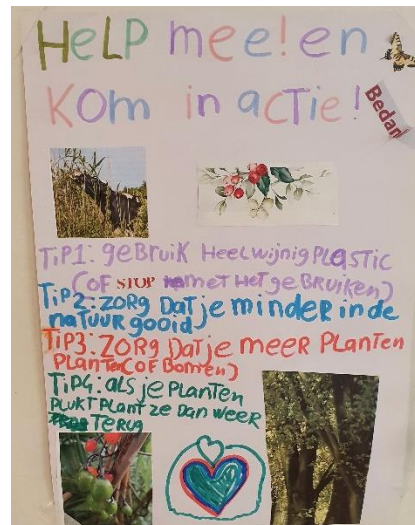 Help mee! en
Kom in actie!
Bedan
Tip1: gebruik heel wijnig plastic
(of STOP met het gebruiken)
Tip2: zorg dat je minder in de
natuur gooid
Tip3: zorg dat je meer planten
plant (of bomen)
Tip4: als je planten
plukt plant ze dan weer
terug